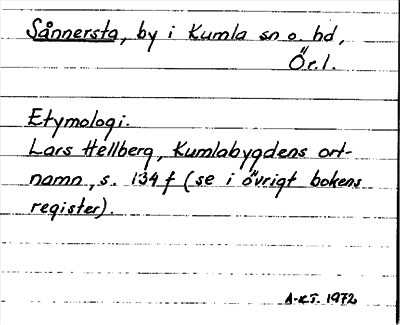 Sånnersta, by i Kumla sn o. hd,
Ör.l.
Etymologi.
Lars Hellberg, Kumlabygdens ort-
namn, s. 134 f (se i övrigt bokens
register).
A-K.T. 1972